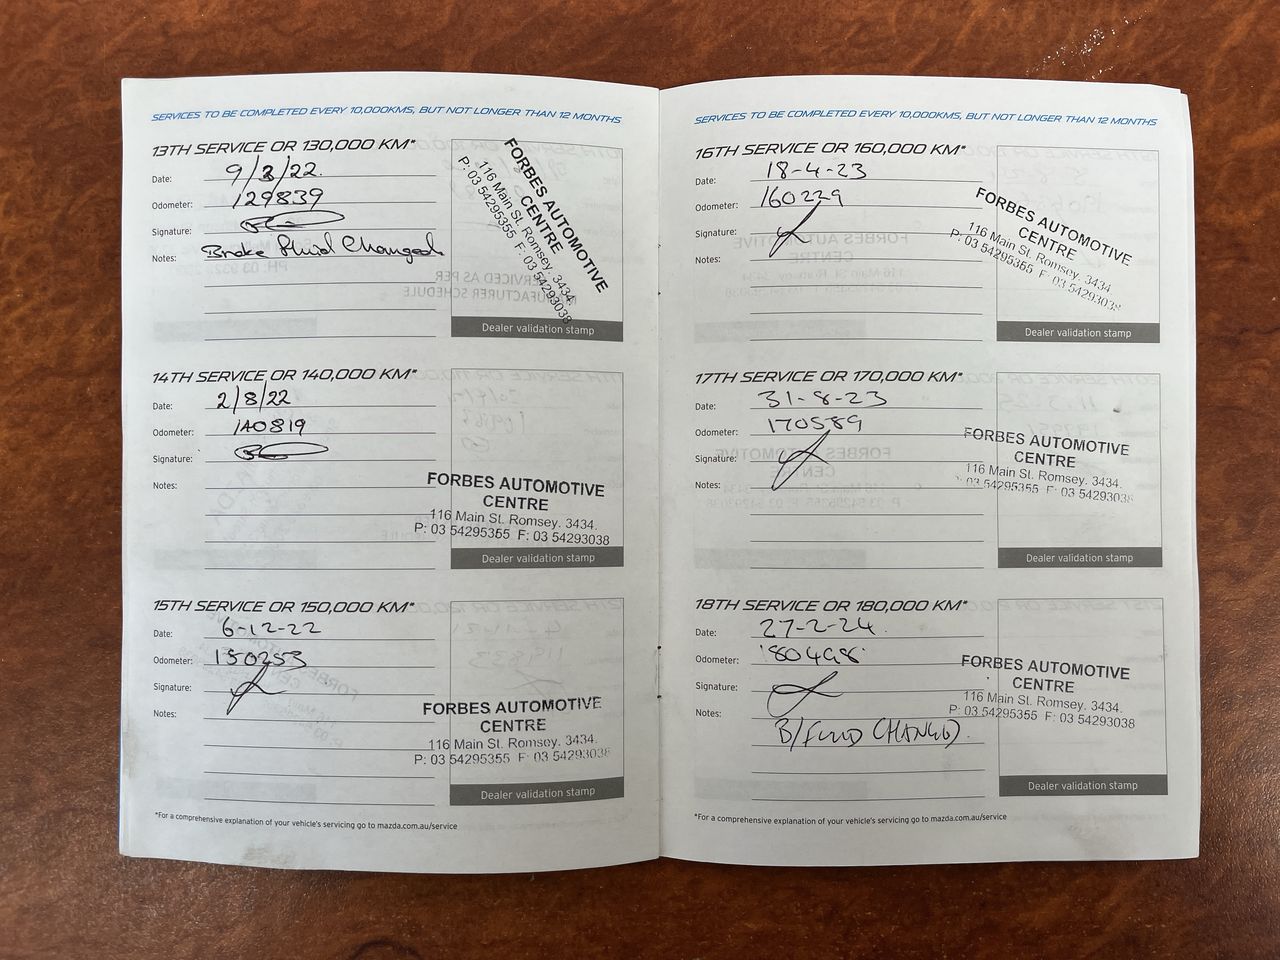 SERVICES TO BE COMPLETED EVERY 10,000KMS, BUT NOT LONGER THAN 12 MONTHS
13TH SERVICE OR 130,000 KM*
Date: 9/3/22.
Odometer: 129839
Signature:
Notes: Brake Fluid Changed
FORBES AUTOMOTIVE
CENTRE
116 Main St. Romsey. 3434.
P: 03 54295355 F: 03 54293038
Dealer validation stamp
14TH SERVICE OR 140,000 KM*
Date: 2/8/22
Odometer: 140819
Signature:
Notes:
FORBES AUTOMOTIVE
CENTRE
116 Main St. Romsey. 3434.
P: 03 54295355 F: 03 54293038
Dealer validation stamp
15TH SERVICE OR 150,000 KM*
Date: 6-12-22
Odometer: 150253
Signature:
Notes:
FORBES AUTOMOTIVE
CENTRE
116 Main St. Romsey. 3434.
P: 03 54295355 F: 03 54293038
Dealer validation stamp
*For a comprehensive explanation of your vehicle's servicing go to mazda.com.au/service
SERVICES TO BE COMPLETED EVERY 10,000KMS, BUT NOT LONGER THAN 12 MONTHS
16TH SERVICE OR 160,000 KM*
Date: 18-4-23
Odometer: 160229
Signature:
Notes:
FORBES AUTOMOTIVE
CENTRE
116 Main St. Romsey. 3434
P: 03 54295355 F: 03 54293038
Dealer validation stamp
17TH SERVICE OR 170,000 KM*
Date: 31-8-23
Odometer: 170589
Signature:
Notes:
FORBES AUTOMOTIVE
CENTRE
116 Main St. Romsey. 3434.
03 54295355 F: 03 54293038
Dealer validation stamp
18TH SERVICE OR 180,000 KM*
Date: 27-2-24.
Odometer: 180498
Signature:
Notes:
B/FLUID CHANGED.
FORBES AUTOMOTIVE
CENTRE
116 Main St. Romsey. 3434.
P: 03 54295355 F: 03 54293038
Dealer validation stamp
*For a comprehensive explanation of your vehicle's servicing go to mazda.com.au/service